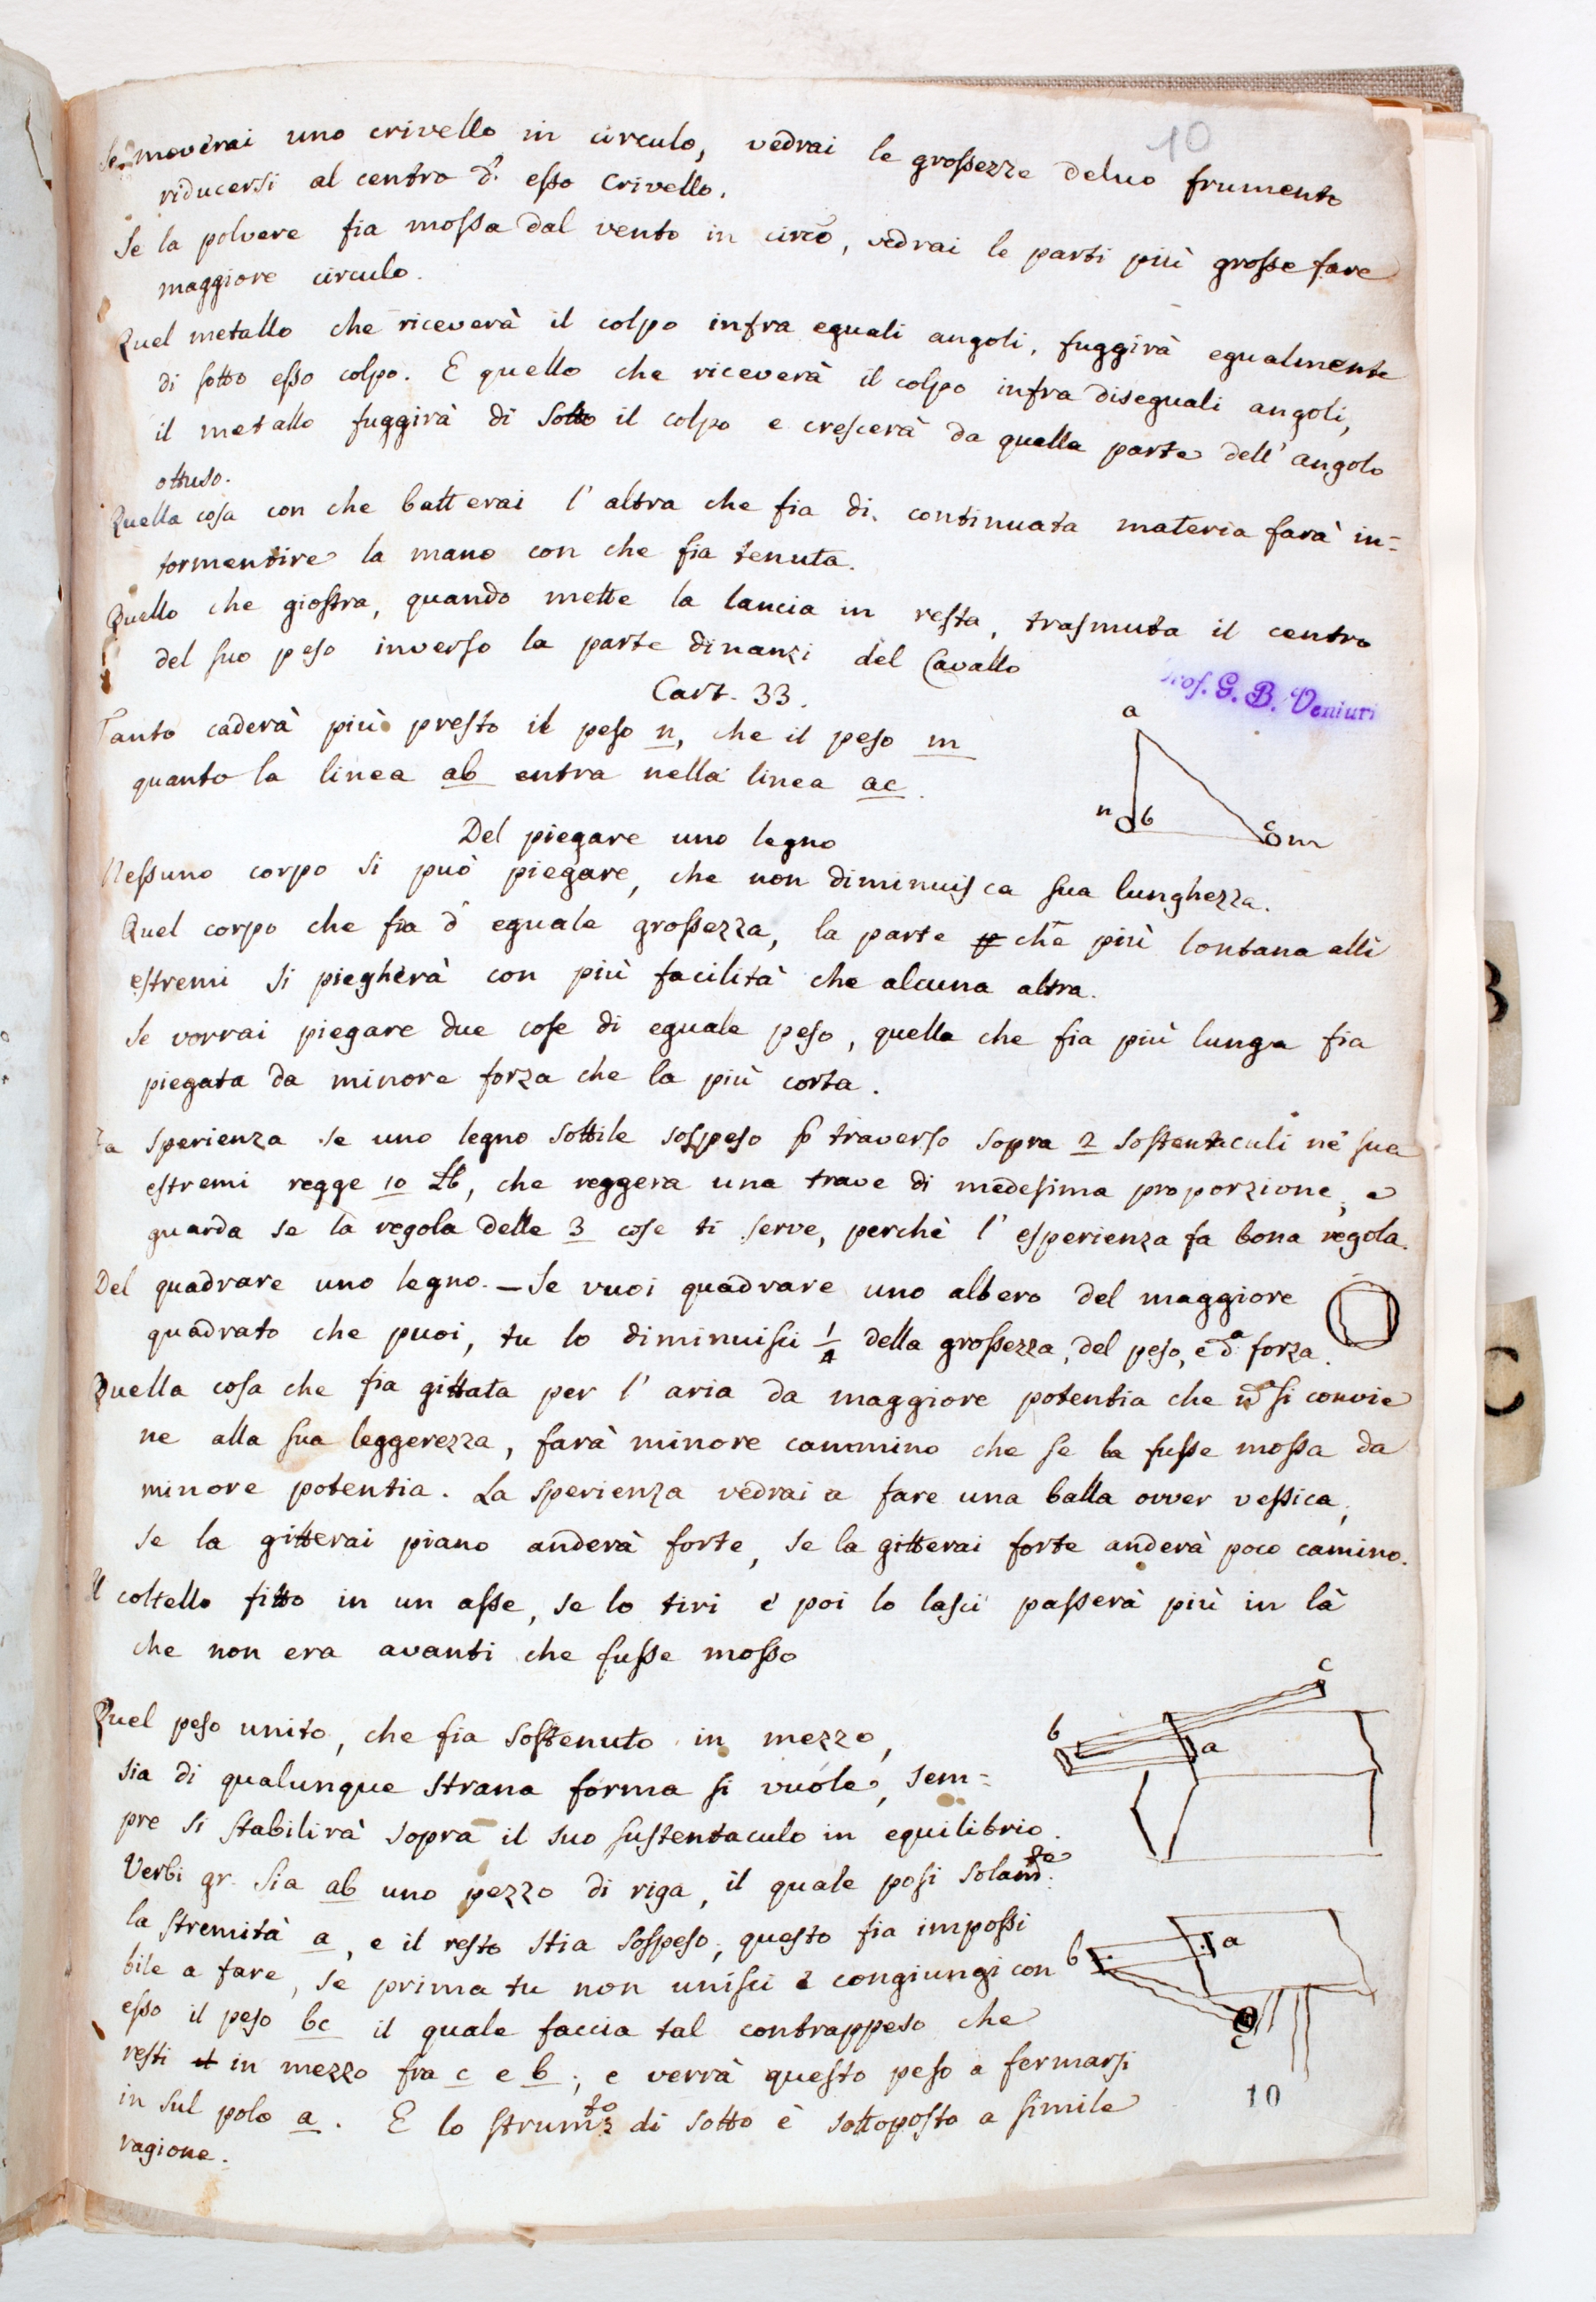 10
Se moverai uno crivello in circulo, vedrai le grossezze del suo frumento
riducersi al centro d'esso Crivello.
Se la polvere fia mossa dal vento in circō, vedrai le parti più grosse fare
maggiore circulo.
Quel metallo che riceverà il colpo infra eguali angoli, fuggirà egualmente
di sotto esso colpo. E quello che riceverà il colpo infra diseguali angoli,
il metallo fuggirà di sotto il colpo e crescerà da quella parte dell'angolo
ottuso.
Quella cosa con che batterai l'altra che fia di continuata materia farà in=
tormentire la mano con che fia tenuta.
Quello che giostra, quando mette la lancia in resta, trasmuta il centro
del suo peso inverso la parte dinanzi del Cavallo
Prof. G. B. Venturi
Cart. 33.
Tanto caderà più presto il peso n, che il peso m
quanto la linea ab entra nella linea ac.
a
n b c m
Del piegare uno legno
Nessuno corpo si può piegare, che non diminuisca sua lunghezza.
Quel corpo che fia d'eguale grossezza, la parte che più lontana alli
estremi si piegherà con più facilità che alcuna altra.
Se vorrai piegare due cose di eguale peso, quella che fia più lunga fia
piegata da minore forza che la più corta.
Fa sperienza se uno legno sottile sospeso p traverso sopra 2 sostentaculi ne' sua
estremi regge 10 Lb, che reggera una trave di medesima proporzione, e
guarda se la regola delle 3 cose ti serve, perchè l'esperienza fa bona regola.
Del quadrare uno legno. — Se vuoi quadrare uno albero del maggiore
quadrato che puoi, tu lo diminuisci 1/4 della grossezza, del peso, e dª forza.
Quella cosa che fia gittata per l'aria da maggiore potentia che si convie
ne alla sua leggerezza, farà minore cammino che se la fusse mossa da
minore potentia. La sperienza vedrai a fare una balla ovver vessica,
se la gitterai piano anderà forte, se la gitterai forte anderà poco camino.
Il coltello fitto in un asse, se lo tiri e poi lo lasci passerà più in là
che non era avanti che fusse mosso
Quel peso unito, che fia sostenuto in mezzo,
sia di qualunque strana forma si vuole, sem=
pre si stabilirà sopra il suo sustentaculo in equilibrio.
Verbi gr. sia ab uno pezzo di riga, il quale posi solamte
la stremità a, e il resto stia sospeso, questo fia impossi
bile a fare, se prima tu non unisci e congiungi con
esso il peso bc il quale faccia tal contrappeso che
resti in mezzo fra c e b; e verrà questo peso a fermarsi
in sul polo a. E lo strumto di sotto è sottoposto a simile
ragione.
c
b a
b a
c
10
B
C